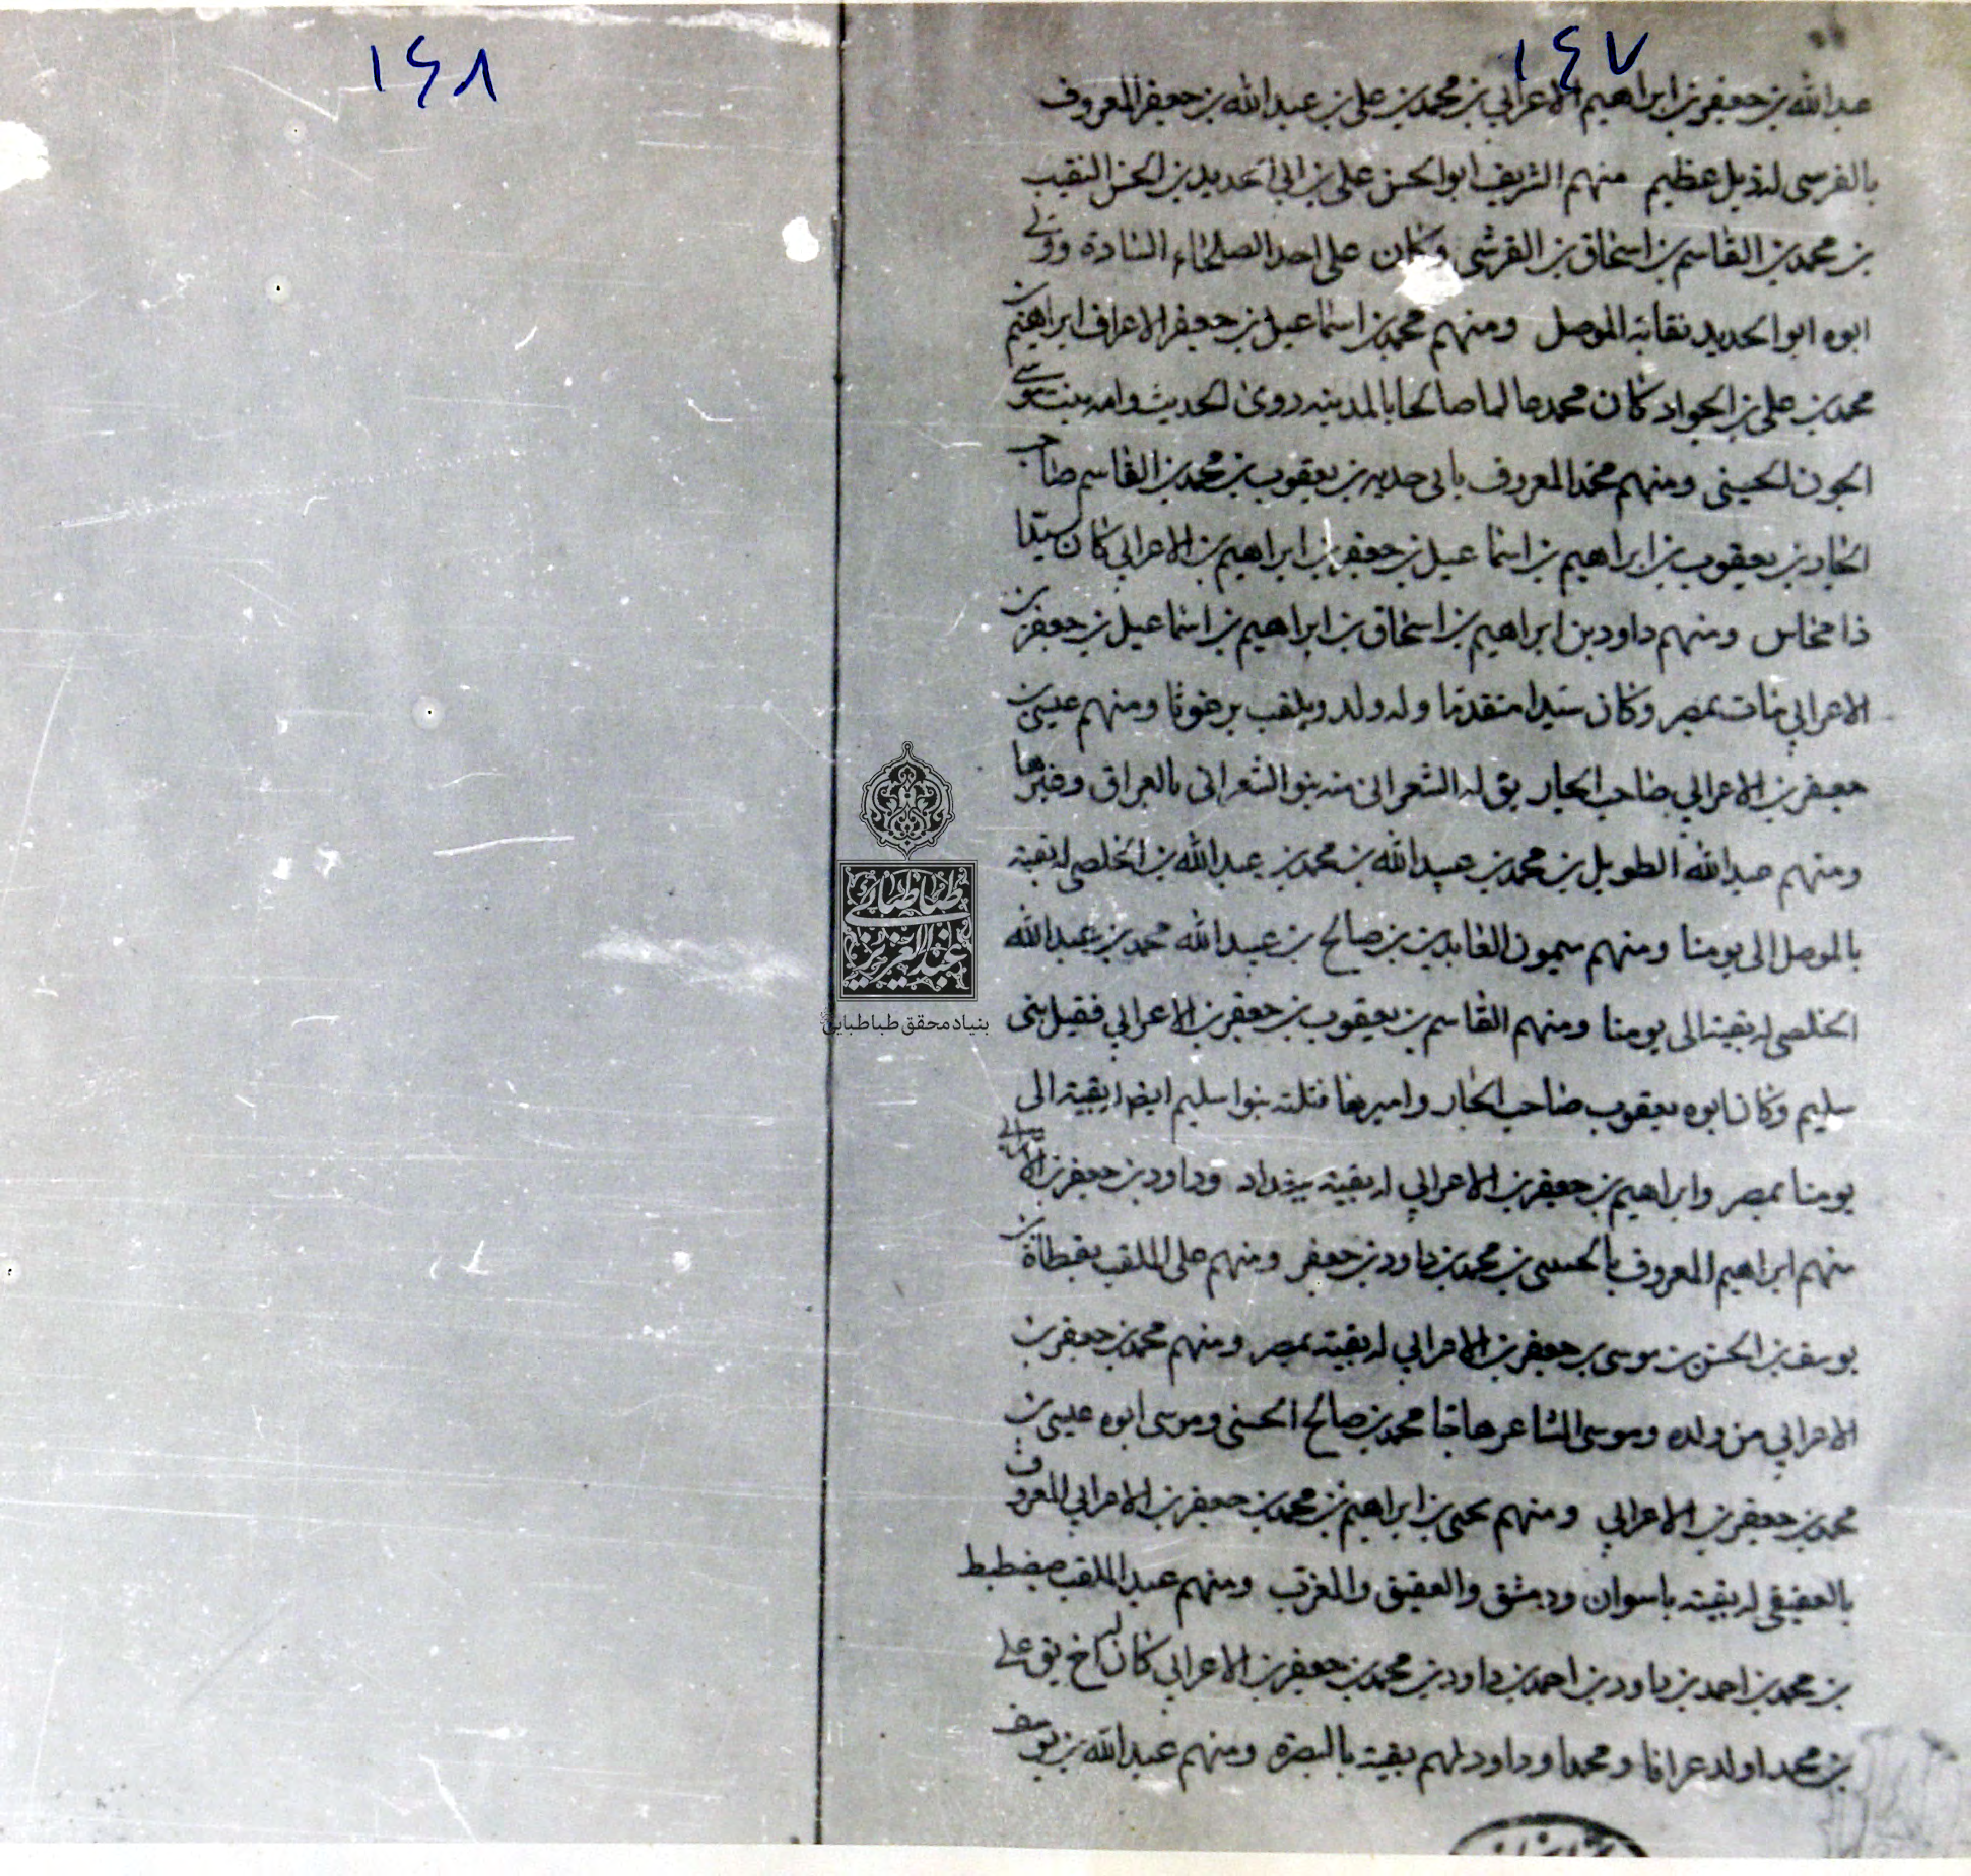 ١٤٧
عبدالله بن جعفر بن ابراهيم الاعرابي بن محمد بن علي بن عبدالله بن جعفر المعروف
بالفرسى له ذيل عظيم منهم الشريف ابوالحسن علي بن ابي احديد بن الحسن النقيب
بن محمد بن القاسم بن اسحاق بن القرشى وكان على احد الصلحاء السادة وولي
ابوه ابوالحديد نقابة الموصل ومنهم محمد بن اسماعيل بن جعفر الاعراف ابراهيم بن
محمد بن علي بن الجواد كان محمد عالما صالحا بالمدينه روى الحديث وامه بنت موسى
الجون الحسينى ومنهم محمد المعروف بابى حديه بن يعقوب بن محمد بن القاسم صاحب
الجاد بن يعقوب بن ابراهيم بن اسماعيل بن جعفر بن ابراهيم بن الاعرابي كان سيدا
ذا محاس ومنهم داود بن ابراهيم بن اسحاق بن ابراهيم بن اسماعيل بن جعفر بن
الاعرابي مات بمصر وكان سيدا متقدما وله ولد ويلقب برغوثا ومنهم عيسى بن
جعفر بن الاعرابي صاحب الجار يق له الشعرانى منه بنو الشعرانى بالعراق وغيرها
ومنهم عبدالله الطويل بن محمد بن عبيدالله بن محمد بن عبدالله بن الخلصى له بقية
بالموصل الى يومنا ومنهم ميمون العابدين بن صالح بن عبيدالله محمد بن عبدالله
الخلصى له بقية الى يومنا ومنهم القاسم بن يعقوب بن جعفر بن الاعرابي فقيل بنى
سليم وكان ابوه يعقوب صاحب الجار واميرها قتلته بنوا سليم ايضا بقية الى
يومنا بمصر وابراهيم بن جعفر بن الاعرابي له بقية ببغداد وداود بن جعفر بن الاعرابي
منهم ابراهيم المعروف بالحسسى بن محمد بن داود بن جعفر ومنهم على الملقب بقطاة بن
يوسف بن الحسن بن موسى بن جعفر بن الاعرابي له بقية بمصر ومنهم محمد بن جعفر بن
الاعرابي من ولده وموسى الشاعر هاجا محمد بن صالح الحسنى وموسى ابوه عيسى بن
محمد بن جعفر بن الاعرابي ومنهم يحيى بن ابراهيم بن محمد بن جعفر بن الاعرابي المعروف
بالعقيقى له بقية باسوان ودمشق والعقيق والمغرب ومنهم عبد الملقب
بن محمد بن احمد بن داود بن احمد بن داود بن محمد بن جعفر بن الاعرابي كان له اخ يق على
بن محمد اولد عرافا ومحمدا وداود لهم بقية بالبصرة ومنهم عبدالله بن يوسف
١٤٨
طباطبائي
عبدالعزيز
بنیاد محقق طباطبایی